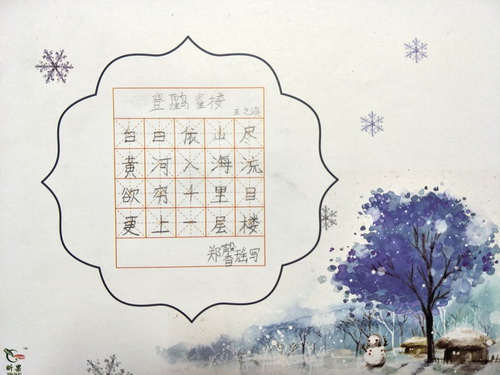 登鹳雀楼
王之涣
白日依山尽
黄河入海流
欲穷千里目
更上一层楼
郑馨瑶写
昕果